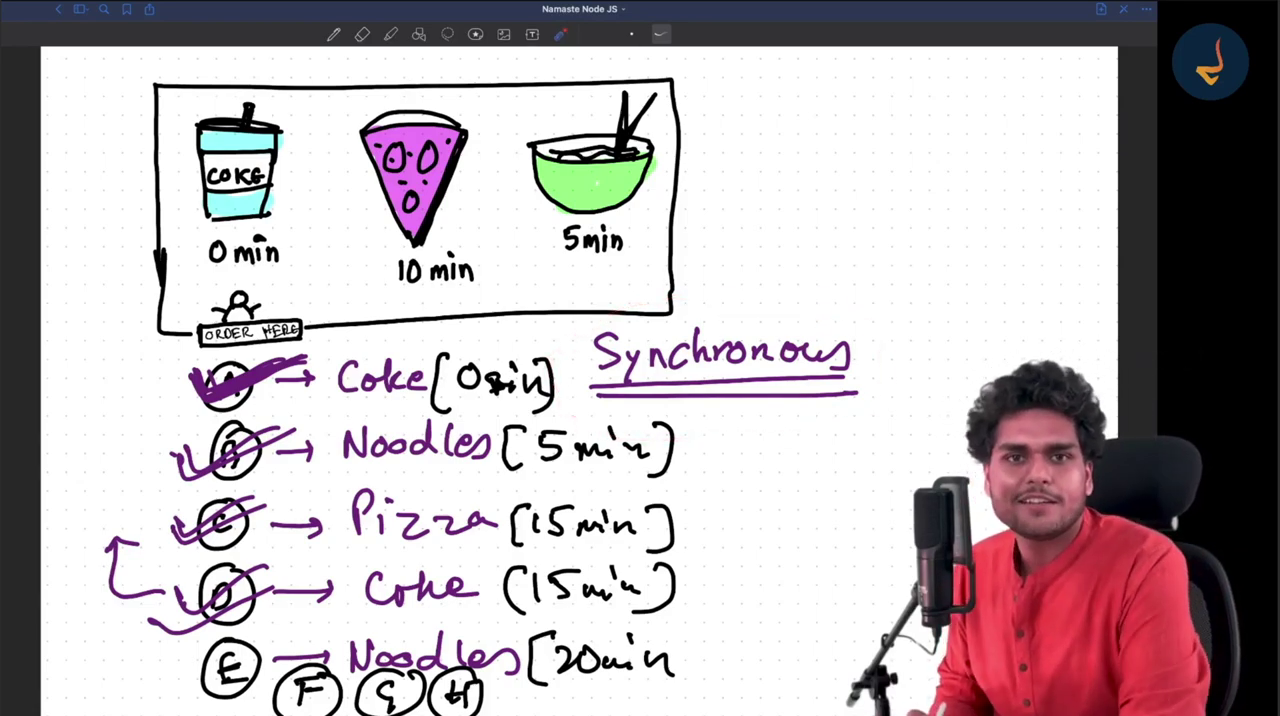 Namaste Node JS
COKE
0 min
10 min
5min
ORDER HERE
Synchronous
A → Coke [0min]
B → Noodles [5min]
C → Pizza [15min]
D → Coke (15min)
E → Noodles [20min
F G H